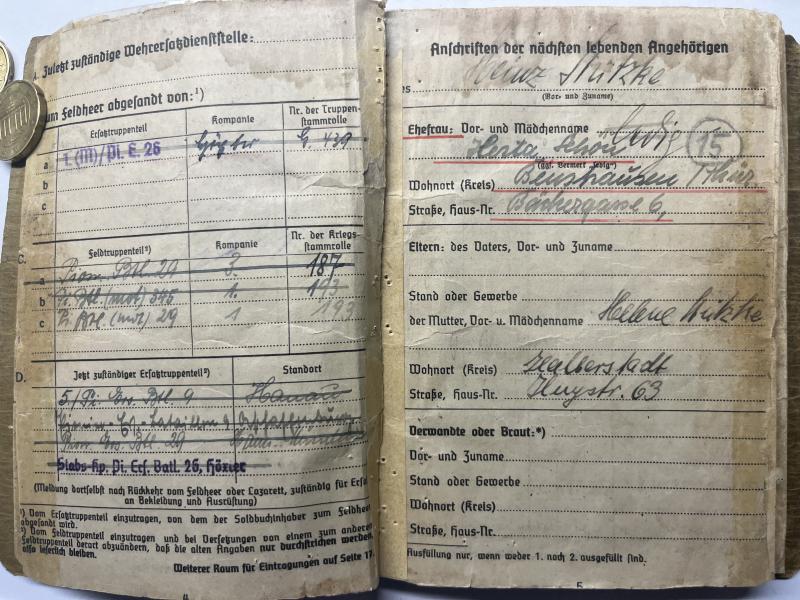 Zuletzt zuständige Wehrersatzdienststelle:
zum Feldheer abgesandt von:¹)
Ersatztruppenteil Kompanie Nr. der Truppenstammrolle
a 1.(M)/Pi. E. 26 439
b
c
C.
Feldtruppenteil²) Kompanie Nr. der Kriegsstammrolle
a Pion. Btl. 29 3. 187
b Pi. Btl. (mot) 345 1. 193
c Pi. Btl. (mot) 29 1 193
D.
Jetzt zuständiger Ersatztruppenteil²) Standort
5./Pi. Ers. Btl. 9 Hanau
Pion. Ers. Btl. 29
Stabs-Kp. Pi. Ers. Batl. 26, Höxter
(Meldung dortselbst nach Rückkehr vom Feldheer oder Lazarett, zuständig für Ersatz
an Bekleidung und Ausrüstung)
¹) Vom Ersatztruppenteil einzutragen, von dem der Soldbuchinhaber zum Feldheer
abgesandt wird.
²) Vom Feldtruppenteil einzutragen und bei Versetzungen von einem zum anderen
Feldtruppenteil derart abzuändern, daß die alten Angaben nur durchstrichen werden,
also leserlich bleiben.
Weiterer Raum für Eintragungen auf Seite 17.
4
Anschriften der nächsten lebenden Angehörigen
des Heinz Mützke
(Vor- und Zuname)
Ehefrau: Vor- und Mädchenname Ledig 15
Herta Schon
(ggf. Vermerk „ledig“)
Wohnort (Kreis) Benshausen Thür.
Straße, Haus-Nr. Bachergasse 6,
Eltern: des Vaters, Vor- und Zuname
Stand oder Gewerbe
der Mutter, Vor- u. Mädchenname Helene Mützke
Wohnort (Kreis) Halberstadt
Straße, Haus-Nr. Huystr. 63
Verwandte oder Braut:*)
Vor- und Zuname
Stand oder Gewerbe
Wohnort (Kreis)
Straße, Haus-Nr.
Ausfüllung nur, wenn weder 1. noch 2. ausgefüllt sind.
5